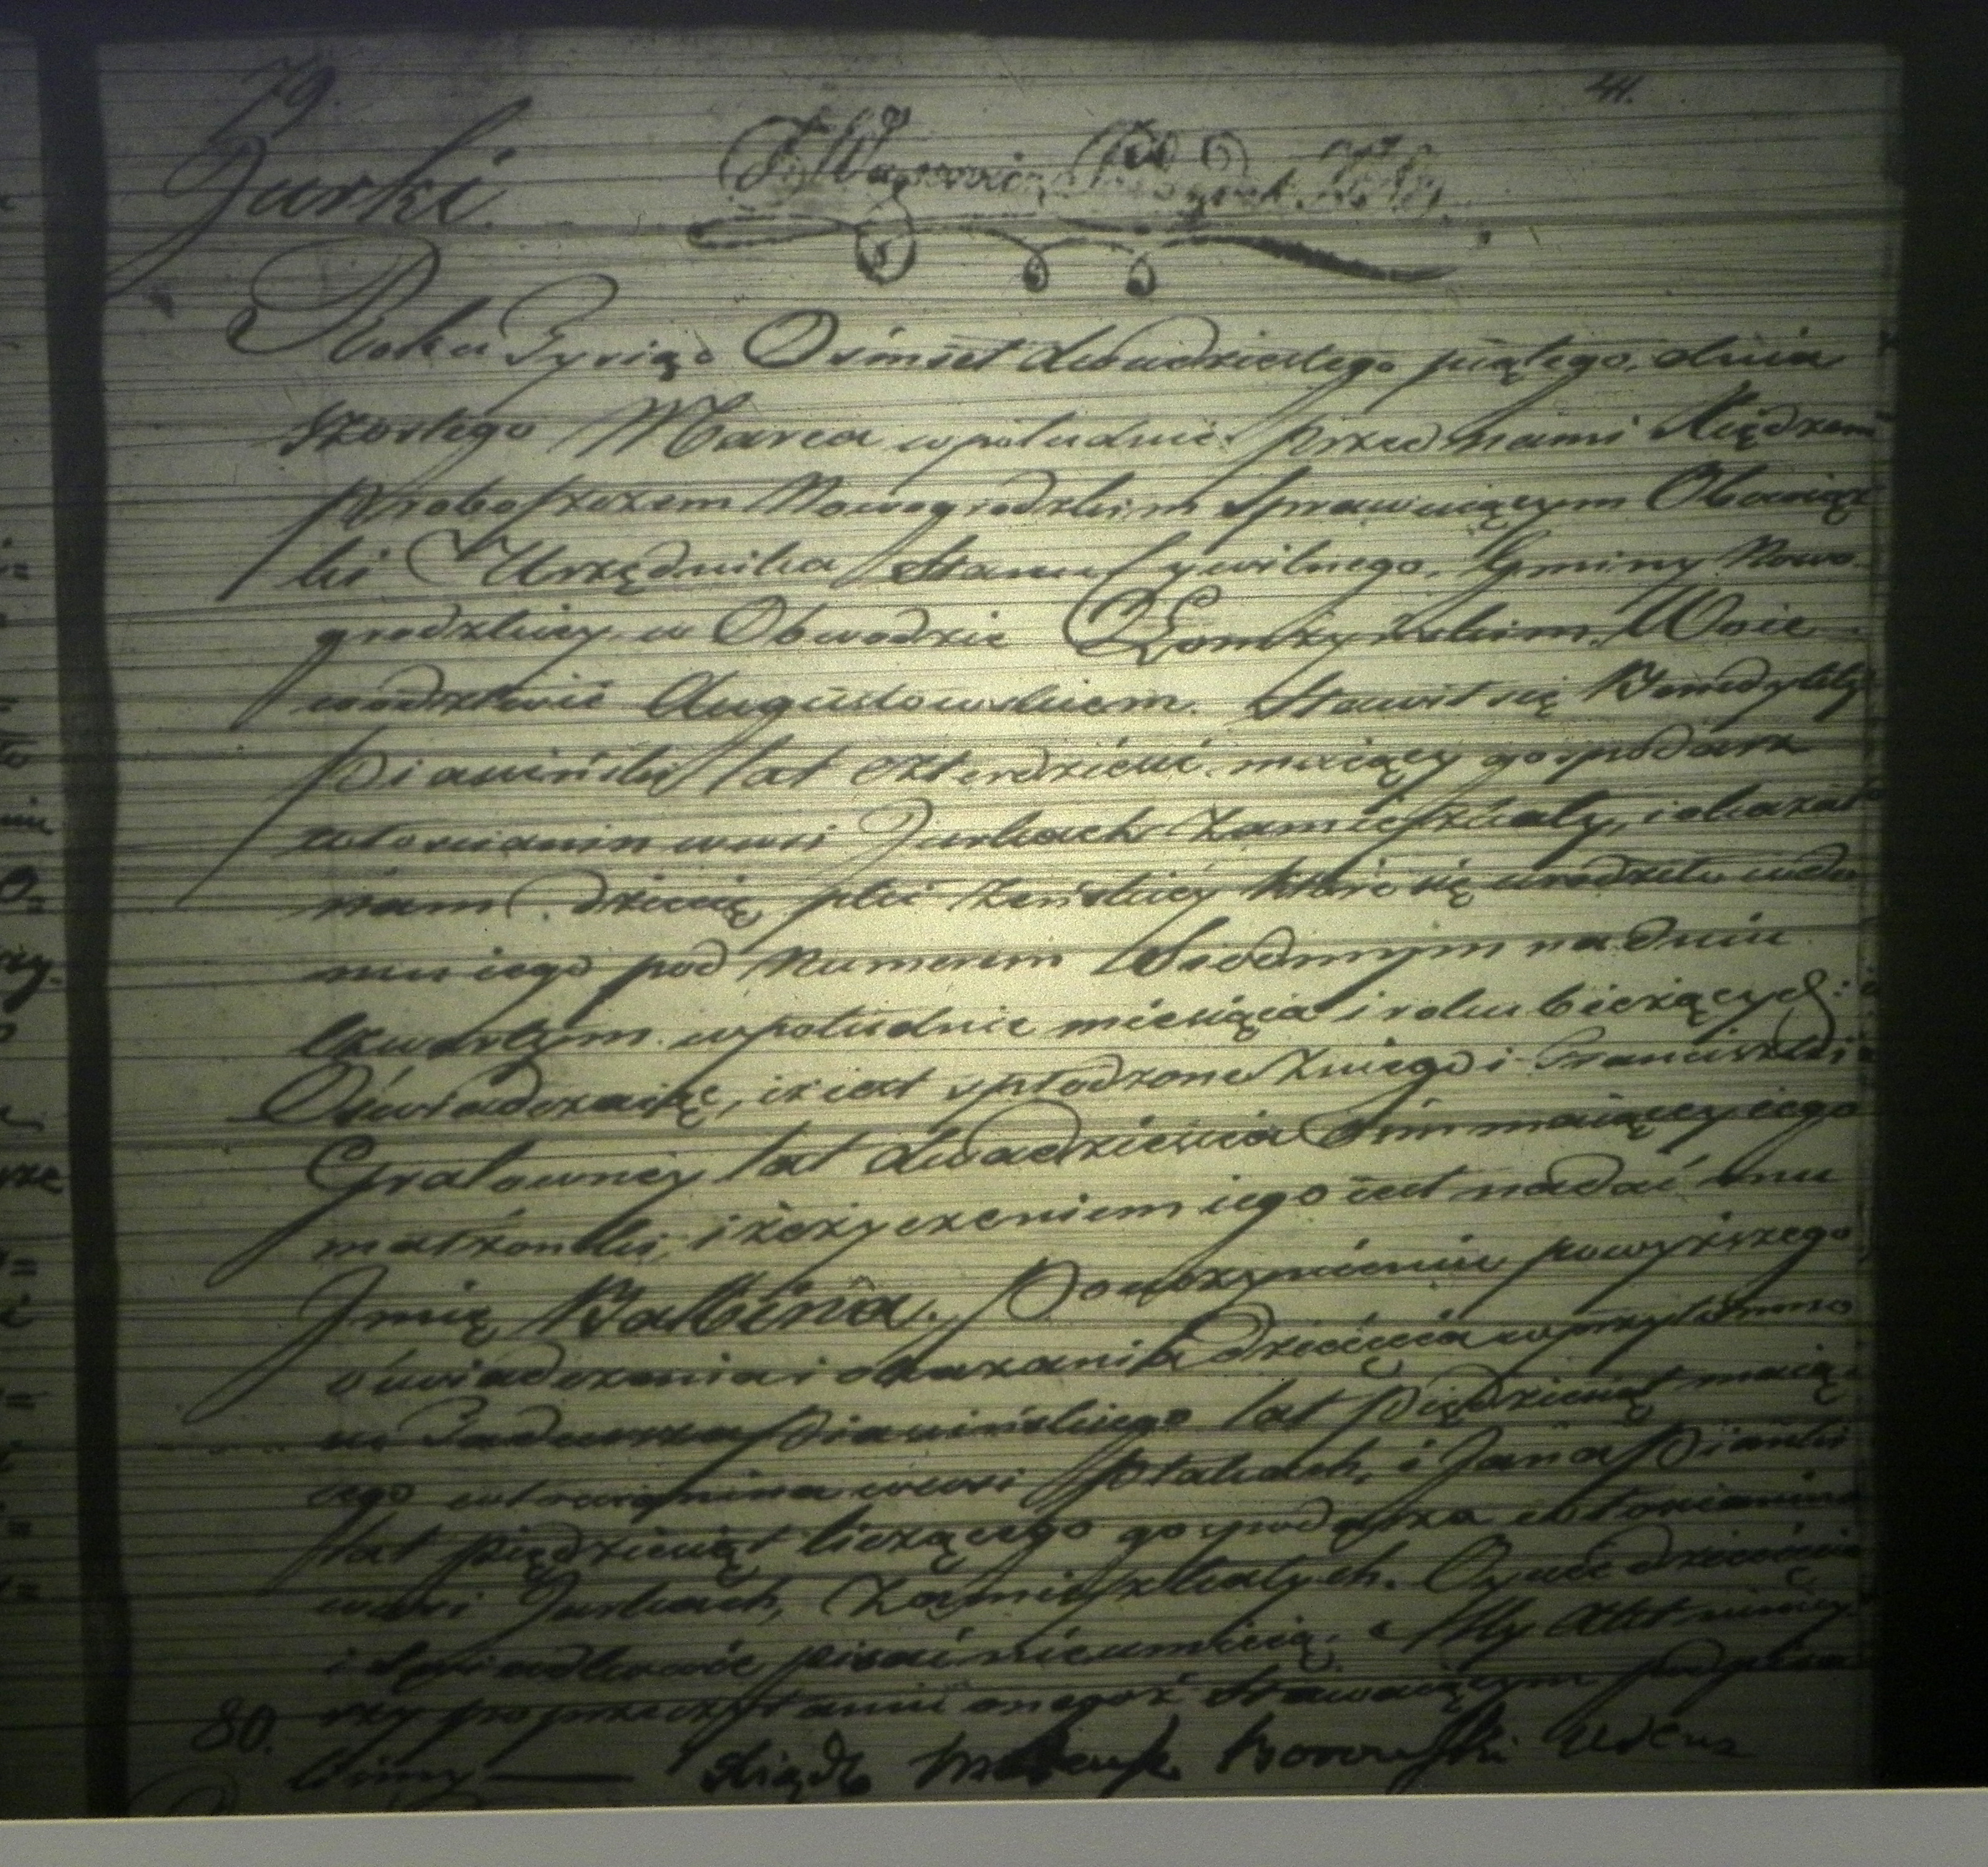 79.
41.
Jurki
Roku Tysiąc Osimset dwudziestego piątego, dnia
szostego Marca w południe przed nami Xiędzem
Proboszczem Nowogrodzkim Sprawuiącym Obowiąz
ki Urzędnika Stanu Cywilnego, Gminy Nowo
grodzkiey w Obwodzie Łomżyńskim. Woie
wodztwie Augustowskiem. Stawił się Benedykt
Piawiński lat czterdzieści maiący gospodarz
włoscianin w wsi Jurkach zamieszkały, i okazał
nam dziecię płci żeńskiey które się urodziło w do
mu iego pod Numerem Siodmym na dniu
czwartym w południe miesiąca i roku bieżących
Oświadczaiąc, iż iest spłodzone z niego i Franciszki
Gralowney lat dwadzieścia Osim maiącey iego
małżonki, i że życzeniem iego iest nadać mu
Imię Balbina. Po uczynieniu powyższego
oświadczenia i okazania dziecięcia w przytomno
sci Tadeusza Piawińskiego lat Piędziesiąt maią
cego włoscianina w wsi Ptakach, i Jana Pianki
lat piędziesiąt liczącego gospodarza włoscianina
w wsi Jurkach, zamieszkałych. Oyciec dziecięcia
i Swiadkowie pisać nieumieią. My Akt niniey
szy po przeczytaniu onegoż Stawaiącym podpisa
liśmy
80.
Xiądz Borowski